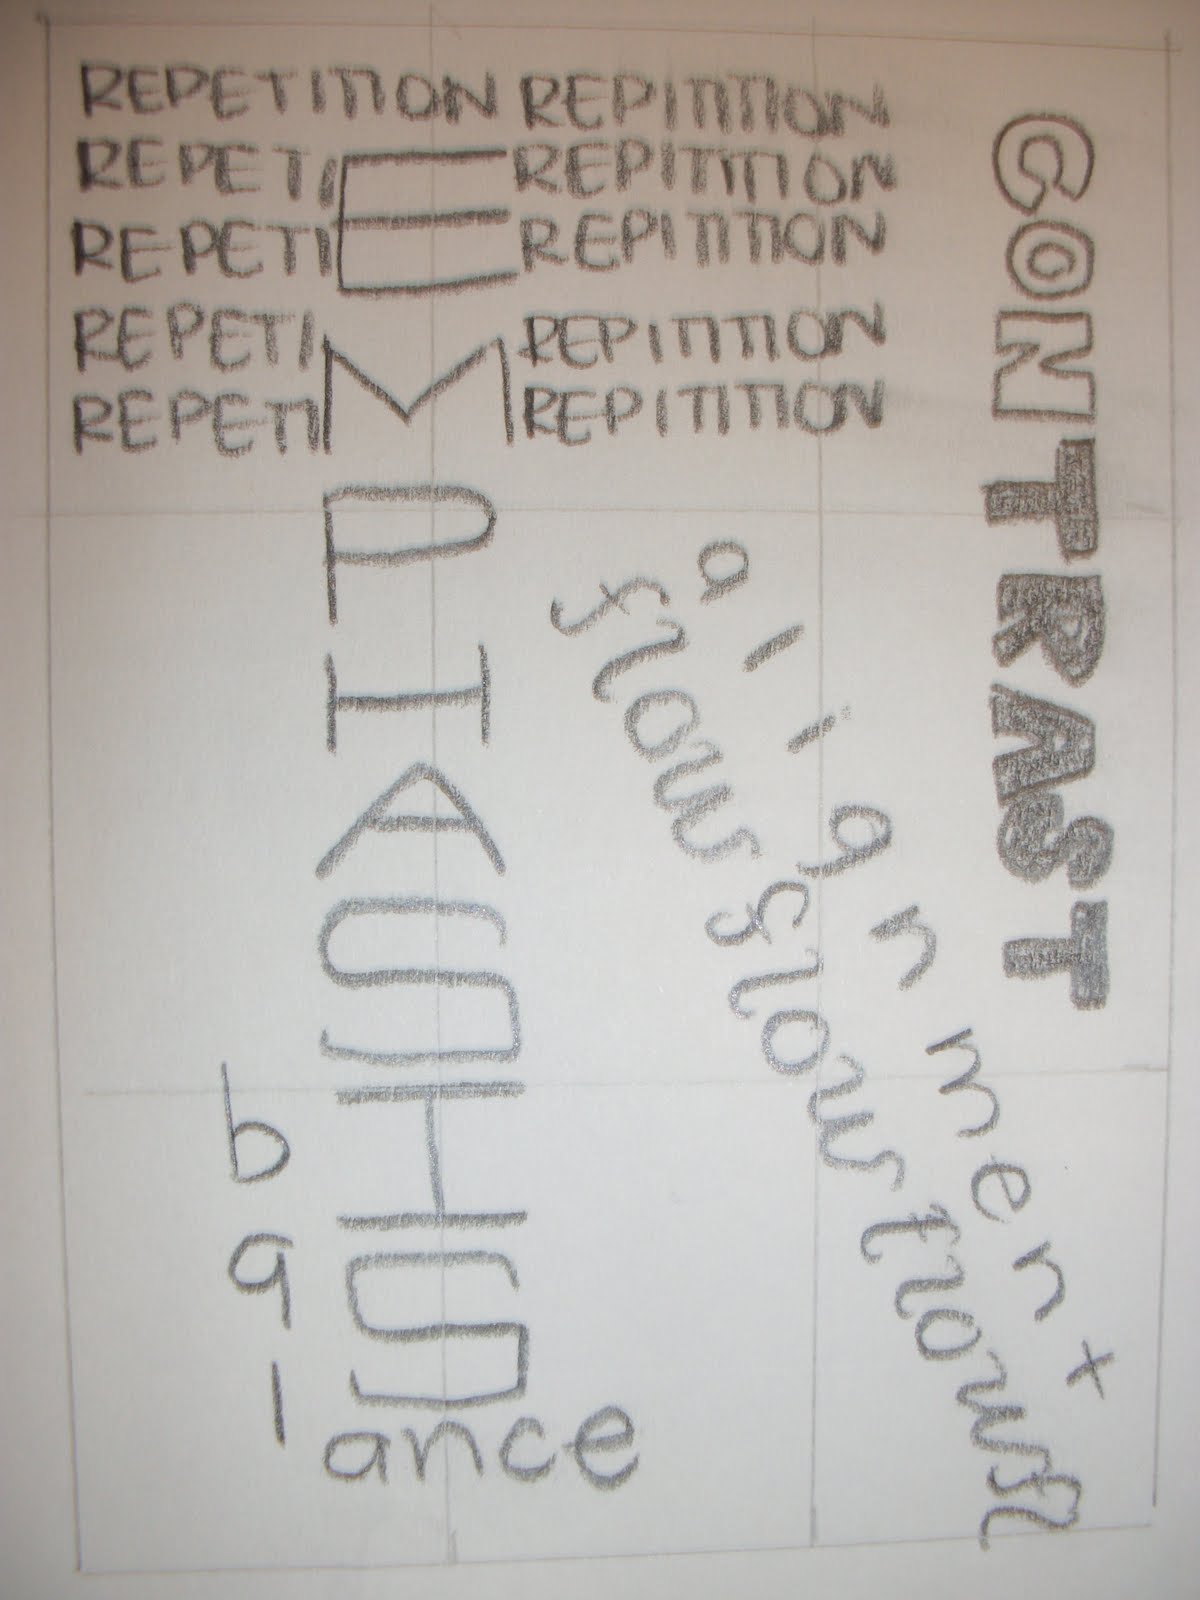 REPETITION REPITITION
REPETI REPITITION
REPETI REPITITION
REPETI REPITITION
REPETI REPITITION
EMPHASIS
CONTRAST
alignment
flow flow flow
balance